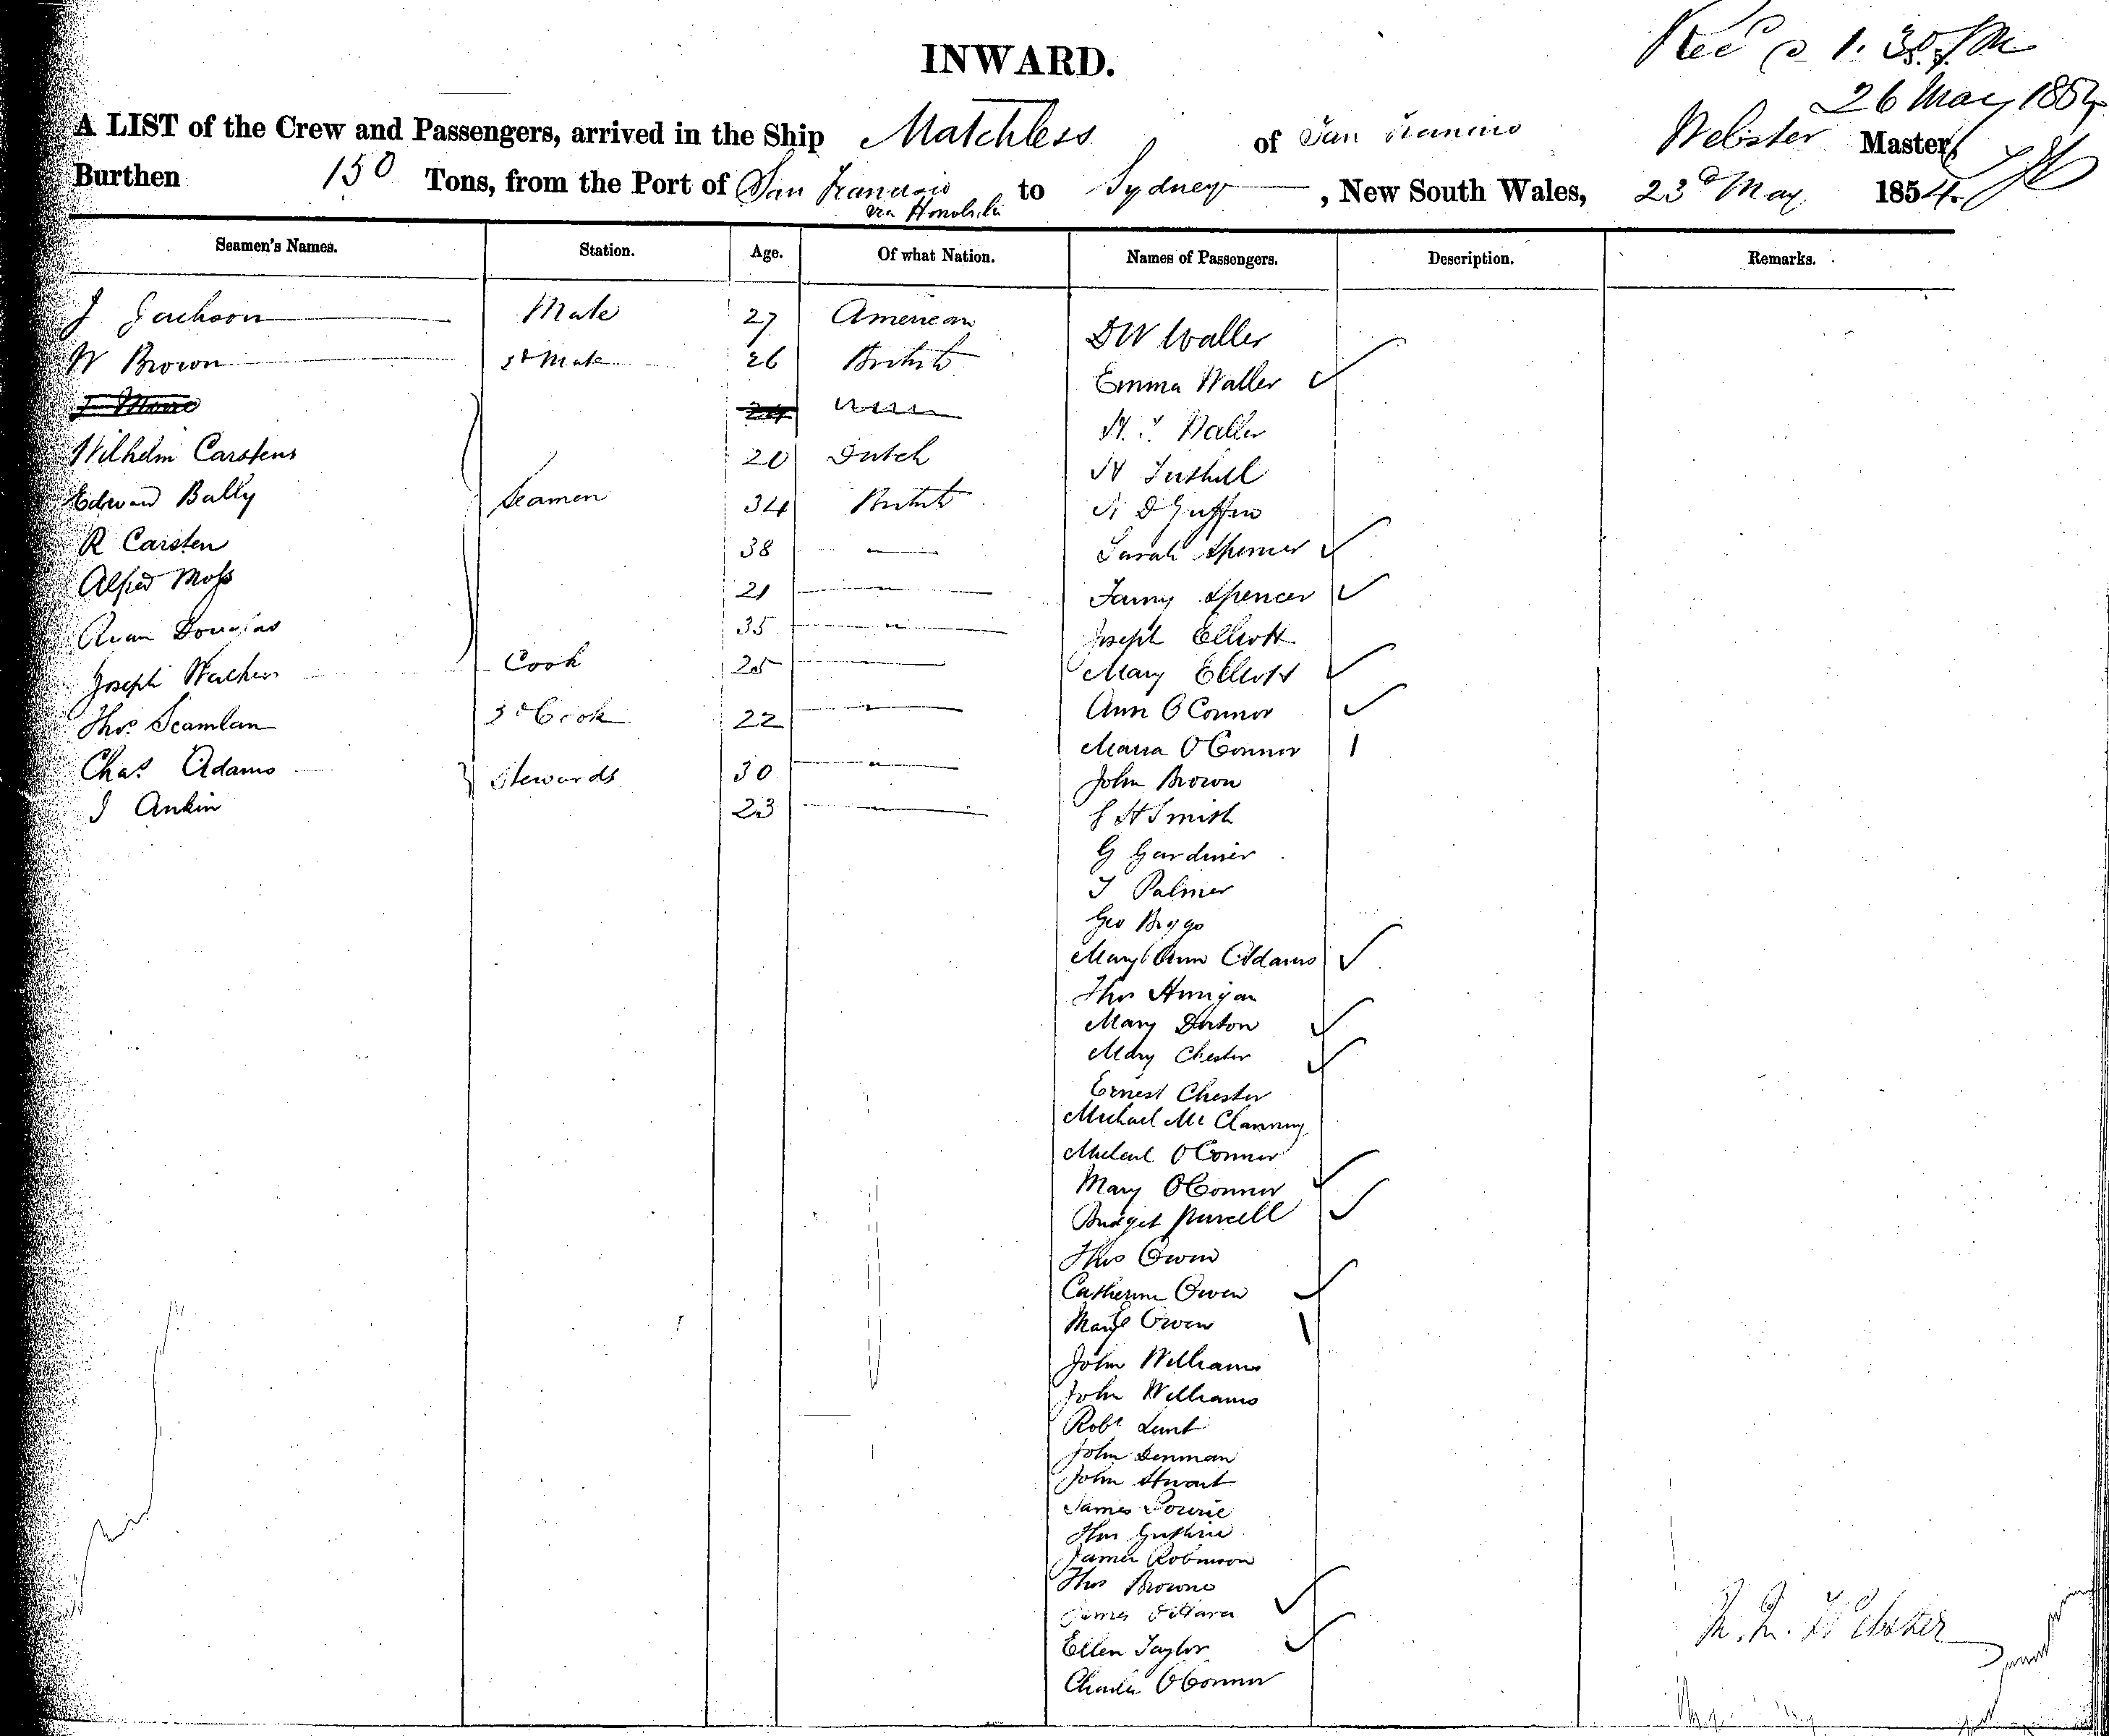 INWARD.
Recd @ 1.30 PM
26 May 1854
A LIST of the Crew and Passengers, arrived in the Ship Matchless of San Francisco Webster Master,
Burthen 150 Tons, from the Port of San Francisco to Sydney, New South Wales, 23d May 1854.
via Honolulu
Seamen's Names. Station. Age. Of what Nation. Names of Passengers. Description. Remarks.
J Jackson Mate 27 American D W Waller
W Brown 2d Mate 26 British Emma Waller
Waller
Wilhelm Carstens 20 Dutch
Edward Bally Seamen 34 British
R Carsten 38 " Sarah Spencer
Alfred Moss 21 " Fanny Spencer
Douglas 35 " Joseph Elliott
Joseph Cook 25 " Mary Elliott
Ann O Connor
Thos Scamlan 2d Cook 22 " Maria O Connor
Chas Adams Stewards 30 " John Brown
J Ankin 23 " S H Smith
G Gardiner
T Palmer
Geo Biggs
Mary Ann Adams
Thos
Mary Dorton
Mary Chester
Ernest Chester
Michael Mc
Michael O Connor
Mary O Connor
Bridget Purcell
Thos Owen
Catherine Owen
Owen
John Williams
John Williams
Robt Lunt
John Denman
John Stuart
James Lowrie
Thos Guthrie
James Robinson
Thos Browne
James O'Hara
Ellen Taylor
Charles O Connor
Webster